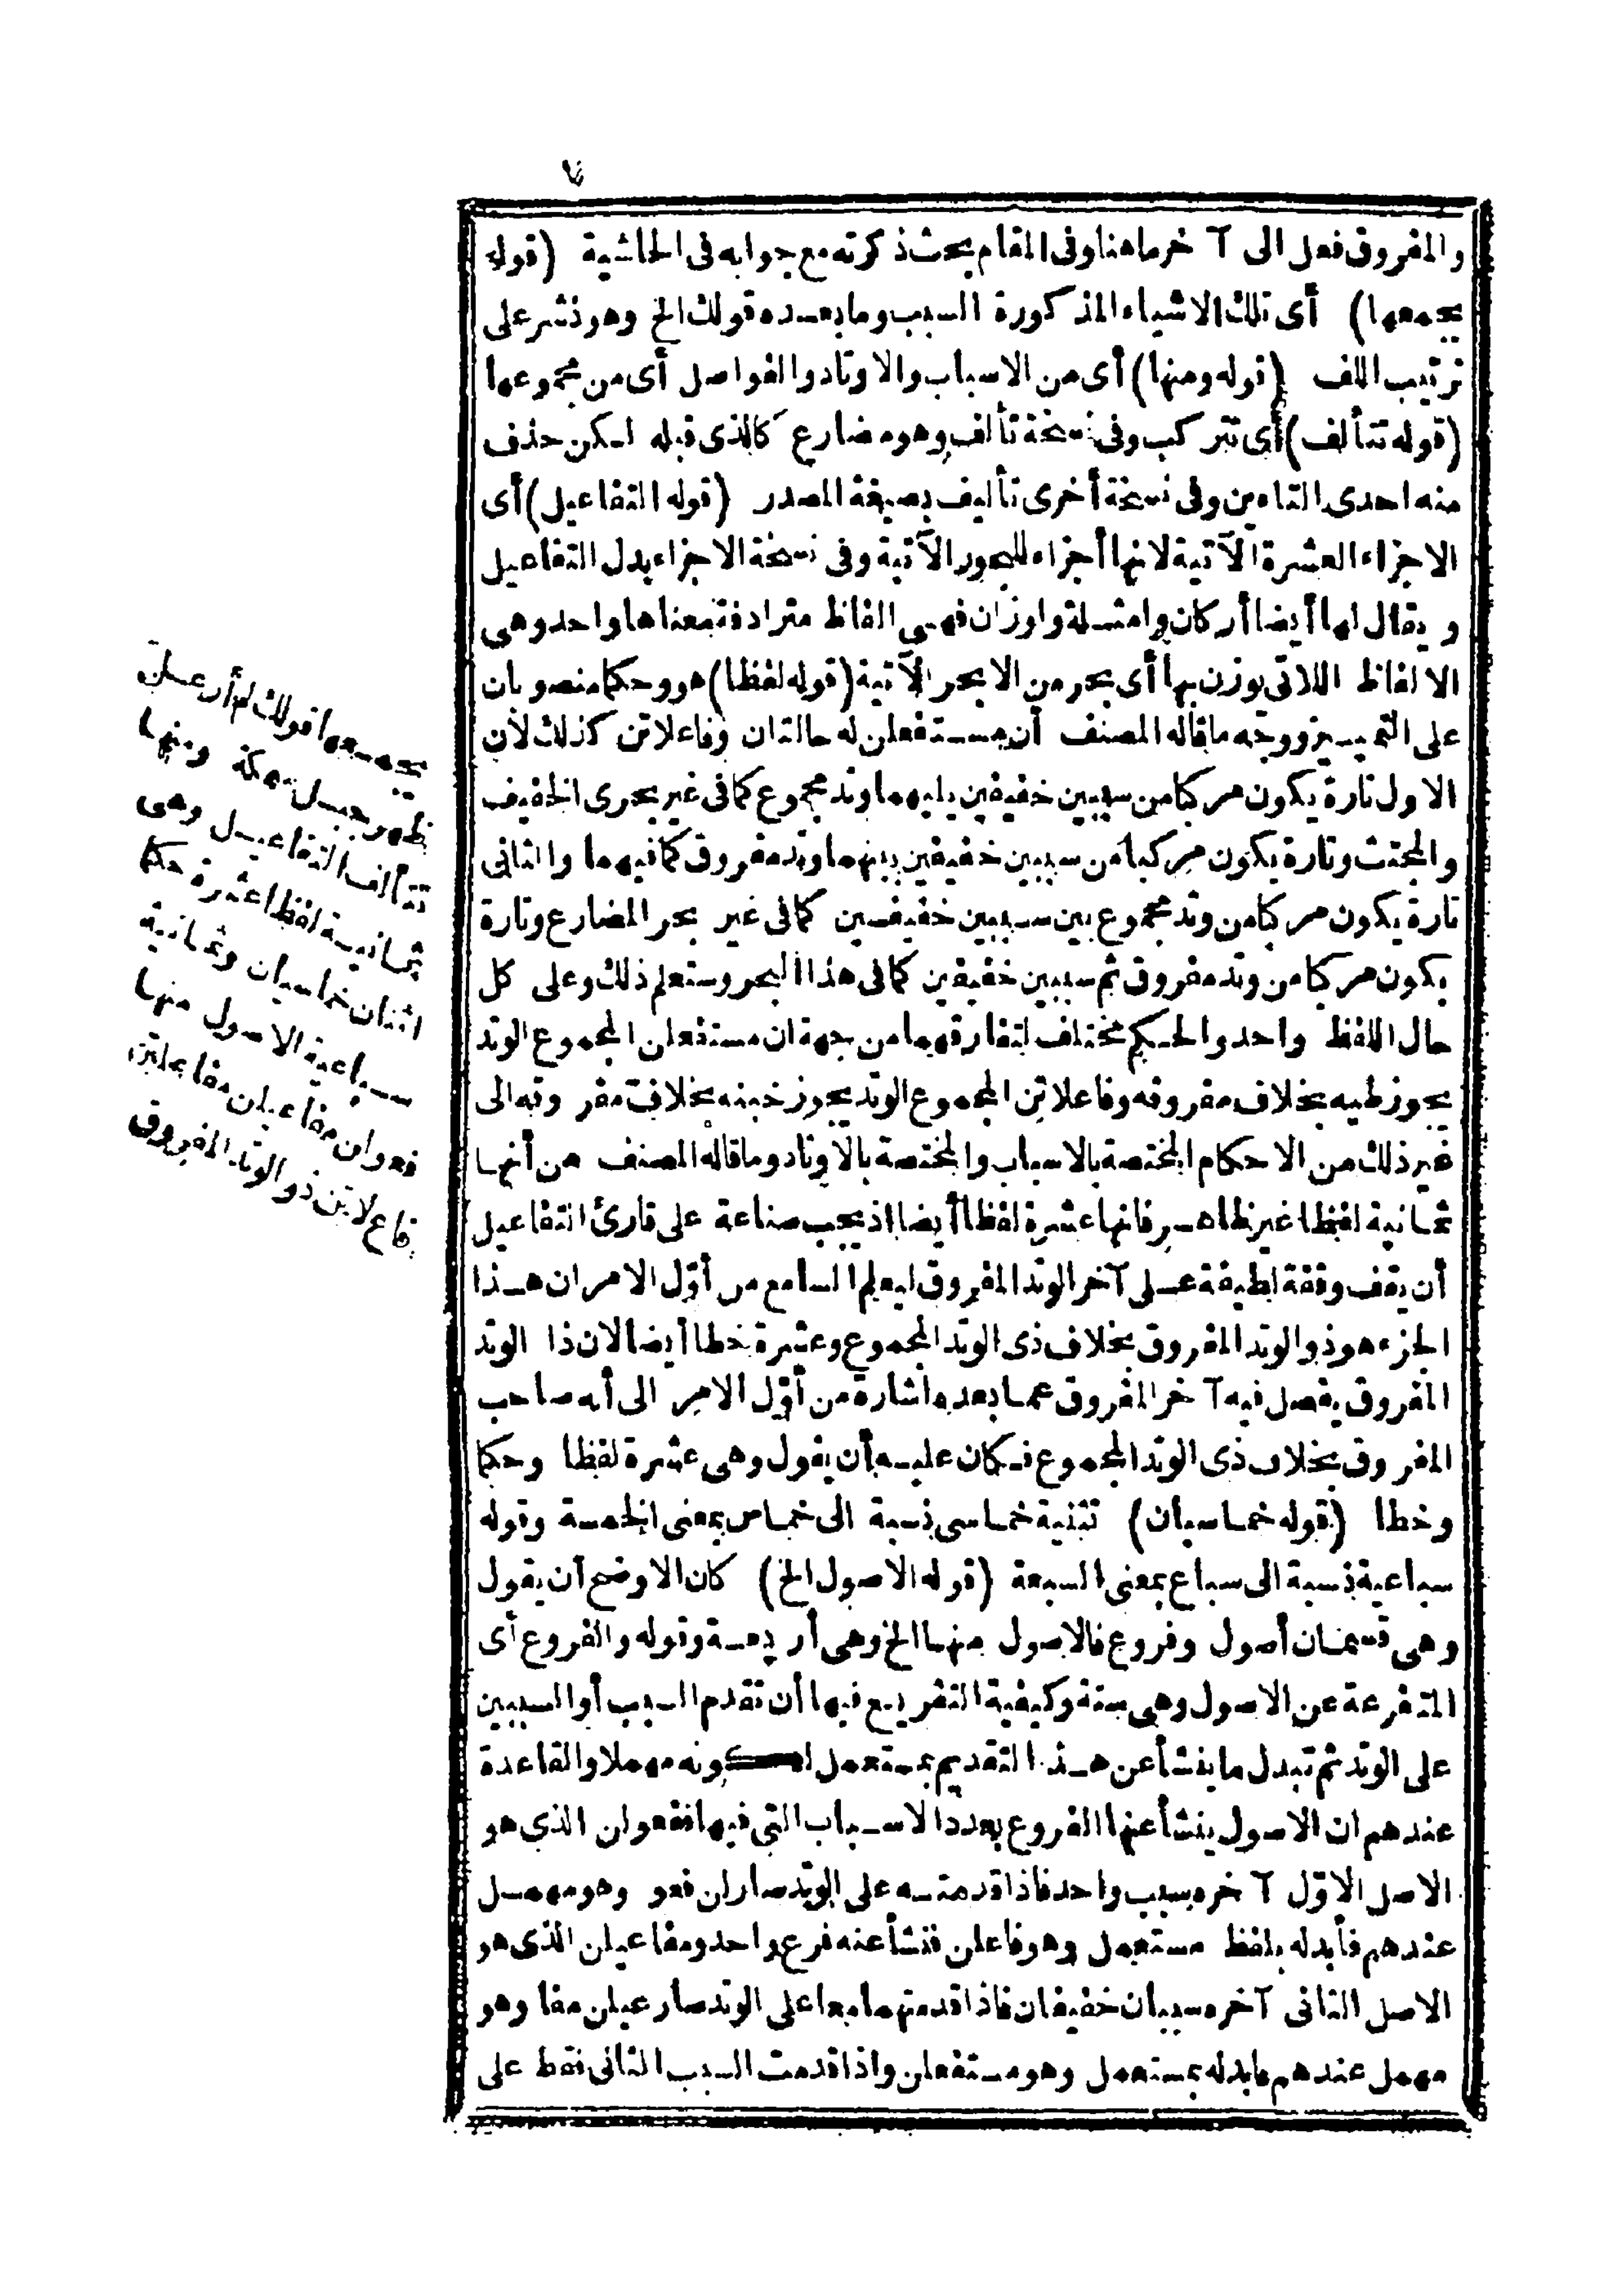 ٧
والمفروق فعل الى آخر ماهنا وفى المقام بحث ذكرته مع جوابه فى الحاشية (قوله
يجمعها) أى تلك الاشياء المذكورة السبب وما بعده قولك الخ وهو نشر على
ترتيب اللف (قوله ومنها) أى من الاسباب والاوتاد والفواصل أى من مجموعها
(قوله تتألف) أى تتركب وفى نسخة تألف وهو مضارع كالذى قبله لكن حذف
منه احدى التاءين وفى نسخة أخرى تأليف بصيغة المصدر (قوله التفاعيل) أى
الاجزاء العشرة الآتية لانها أجزاء للبحور الآتية وفى نسخة الاجزاء بدل التفاعيل
ويقال لها أيضا أركان وامثلة واوزان فهى الفاظ مترادفة معناها واحد وهى
الالفاظ اللاتى يوزن بها أى بحر من الابحر الآتية (قوله لفظا) هو وحكما منصوبان
على التمييز ووجه ما قاله المصنف أن مستفعلن له حالتان وفاعلاتن كذلك لأن
الاول تارة يكون مركبا من سببين خفيفين يليهما وتد مجموع كما فى غير بحرى الخفيف
والمجتث وتارة يكون مركبا من سببين خفيفين بينهما وتد مفروق كما فيهما والثانى
تارة يكون مركبا من وتد مجموع بين سببين خفيفين كما فى غير بحر المضارع وتارة
يكون مركبا من وتد مفروق ثم سببين خفيفين كما فى هذا البحر وستعلم ذلك وعلى كل
حال اللفظ واحد والحكم مختلف لتفارقهما من جهة ان مستفعلن المجموع الوتد
يجوز طيه بخلاف مفروقه وفاعلاتن المجموع الوتد يجوز خبنه بخلاف مفروقه الى
غير ذلك من الاحكام المختصة بالاسباب والمختصة بالاوتاد وما قاله المصنف من أنها
ثمانية لفظا غير ظاهر فانها عشرة لفظا أيضا اذ يجب صناعة على قارئ التفاعيل
أن يقف وقفة لطيفة على آخر الوتد المفروق ليعلم السامع من أول الامر ان هذا
الجزء هو ذو الوتد المفروق بخلاف ذى الوتد المجموع وعشرة خطا أيضا لان ذا الوتد
المفروق يفصل فيه آخر المفروق عما بعده اشارة من أول الامر الى أنه صاحب
المفروق بخلاف ذى الوتد المجموع فكان عليه أن يقول وهى عشرة لفظا وحكما
وخطا (قوله خماسيان) تثنية خماسى نسبة الى خماس بمعنى الخمسة وقوله
سباعية نسبة الى سباع بمعنى السبعة (قوله الاصول الخ) كان الاوضح أن يقول
وهى قسمان أصول وفروع فالاصول منها الخ وهى أربعة وقوله والفروع أى
المتفرعة عن الاصول وهى ستة وكيفية التفريع فيها أن تقدم السبب أو السببين
على الوتد ثم تبدل ما ينشأ عن هذا التقديم بمستعمل لكونه مهملا والقاعدة
عندهم ان الاصول ينشأ عنها الفروع بعدد الاسباب التى فيها ففعولن الذى هو
الاصل الاول آخره سبب واحد فاذا قدمته على الوتد صار لن فعو وهو مهمل
عندهم فأبدله بلفظ مستعمل وهو فاعلن فنشأ عنه فرع واحد ومفاعيلن الذى هو
الاصل الثانى آخره سببان خفيفان فاذا قدمتهما معا على الوتد صار عيلن مفا وهو
مهمل عندهم فابدله بمستعمل وهو مستفعلن واذا قدمت السبب الثانى فقط على
يجمعها قولك لم أر على
ظهر جبل سمكة ومنها
تتألف التفاعيل وهى
ثمانية لفظا عشرة حكما
اثنان خماسيان وثمانية
سباعية الاصول منها
فعولن مفاعيلن مفاعلتن
فاع لاتن ذو الوتد المفروق